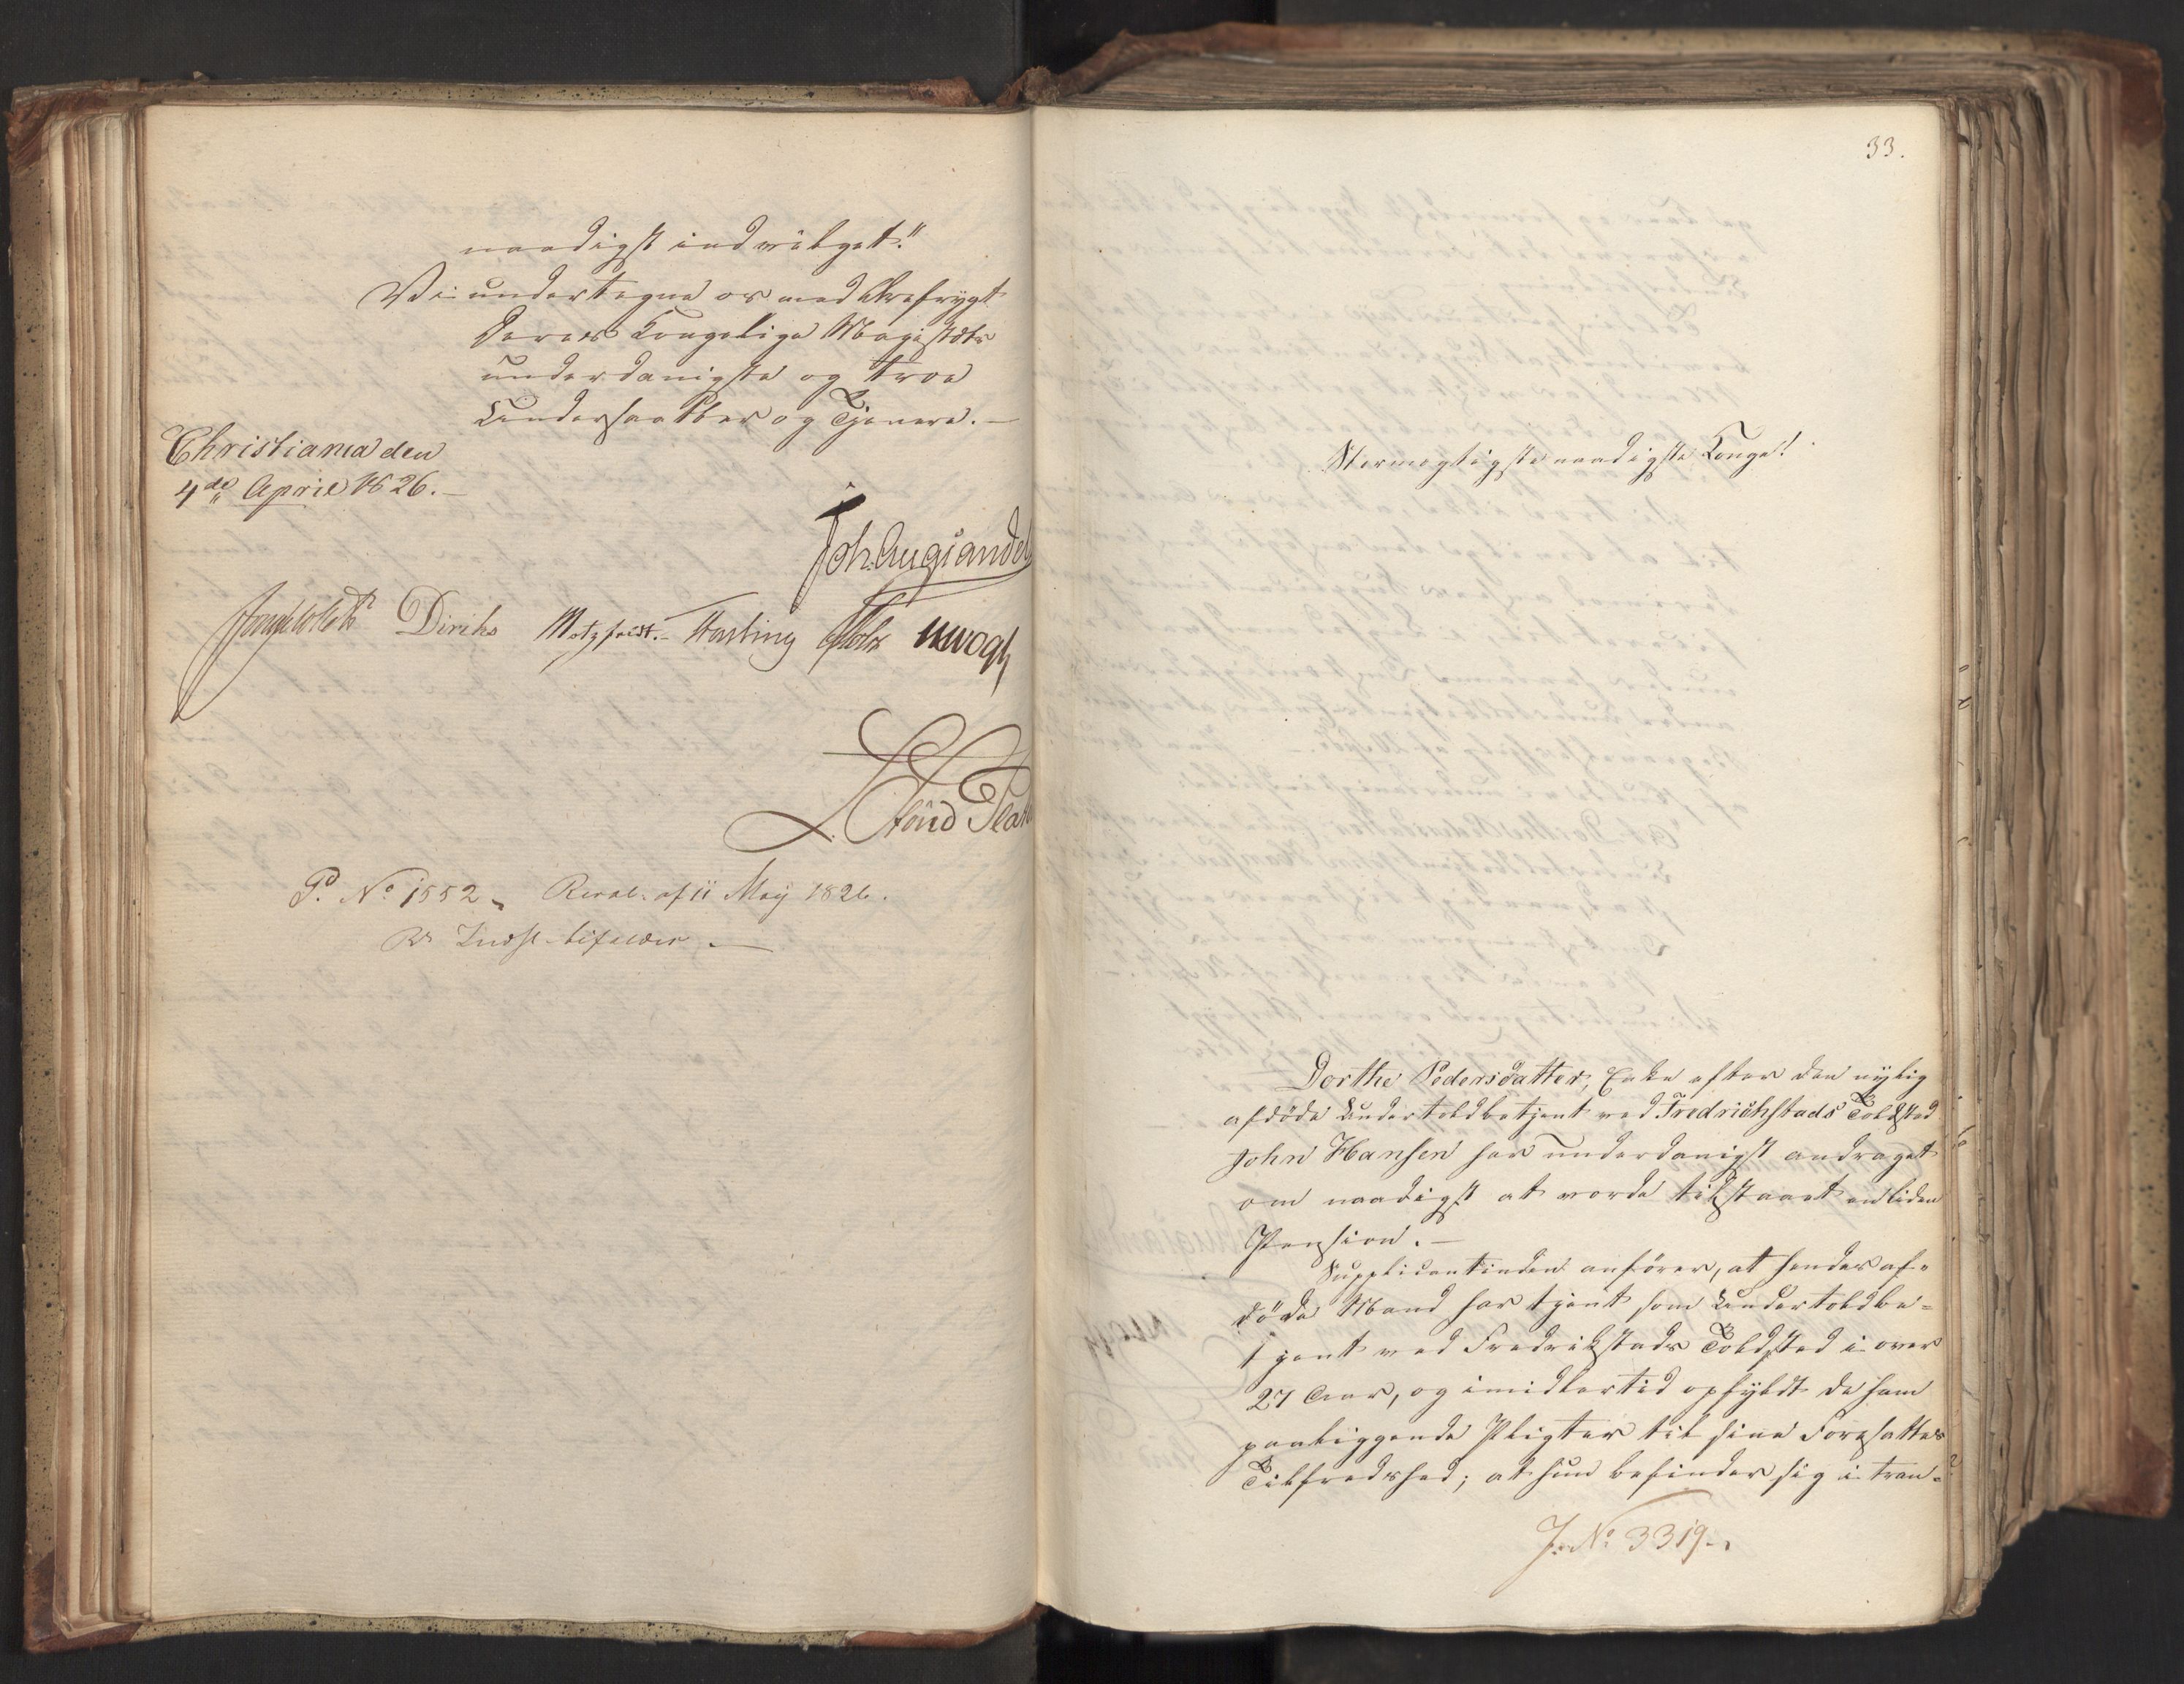 naadigst indvilget."
Vi undertegne os med Ærefrygt
Deres Kongelige Majestæts
underdanigste og troe
Undersaatter og Tjenere. —
Christiania den
4de April 1826. —
Joh. Aug. Sandel
Diriks Motzfeldt. Krogh
P. No 1552, Resol. af 11 May 1826.
Indst. bifaldes. —
33.
Stormægtigste naadigste Konge!
Dorthe Pedersdatter, Enke efter den nylig
afdöde Undertoldbetjent ved Fredrichstads Toldsted
John Hansen har underdanigst andraget
om naadigst at vorde tilstaaet en liden
Pension. —
Supplicantinden anförer, at hendes af-
döde Mand har tjent som Undertoldbe-
tjent ved Fredrikstads Toldsted i over
27 Aar, og imidlertid opfyldt de ham
paaliggende Pligter til sine Foresattes
Tilfredshed; at hun befinder sig i tran-
J. No 3319.